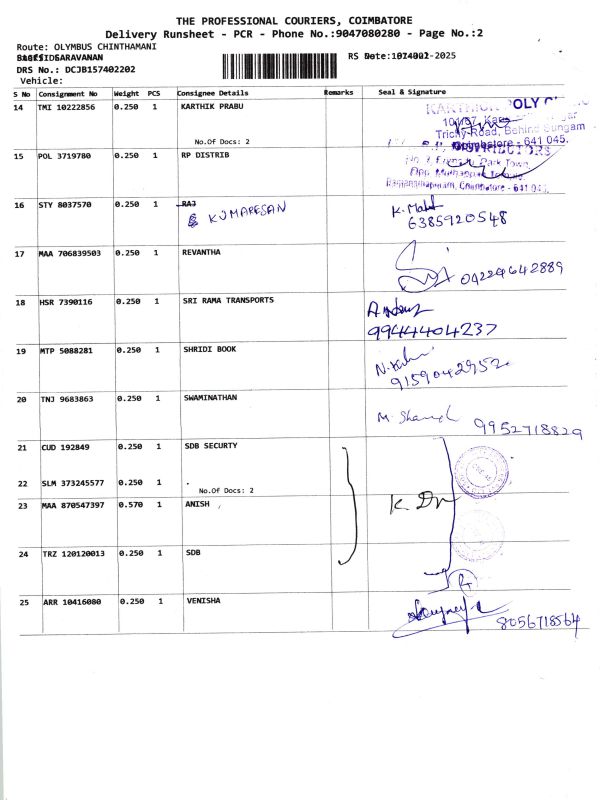 THE PROFESSIONAL COURIERS, COIMBATORE
Delivery Runsheet - PCR - Phone No.:9047080280 - Page No.:2
Route: OLYMBUS CHINTHAMANI
SARAVANAN
DRS No.: DCJB157402202
Vehicle:
S No Consignment No Weight PCS Consignee Details Remarks Seal & Signature
14 TMI 10222856 0.250 1 KARTHIK PRABU
No.Of Docs: 2
Trichy Road, Behind Sungam
Coimbatore - 641 045.
15 POL 3719780 0.250 1 RP DISTRIB
DISTRIBUTORS
Park Town,
Ramanathapuram, Coimbatore - 641 045.
16 STY 8037570 0.250 1 RAJ
KUMARESAN
6385920548
17 MAA 706839503 0.250 1 REVANTHA
04224642889
18 HSR 7390116 0.250 1 SRI RAMA TRANSPORTS
9944404237
19 MTP 5088281 0.250 1 SHRIDI BOOK
9159042952
20 TNJ 9683863 0.250 1 SWAMINATHAN
9952718829
21 CUD 192849 0.250 1 SDB SECURTY
22 SLM 373245577 0.250 1 .
No.Of Docs: 2
23 MAA 870547397 0.570 1 ANISH
24 TRZ 120120013 0.250 1 SDB
25 ARR 10416080 0.250 1 VENISHA
8056718564